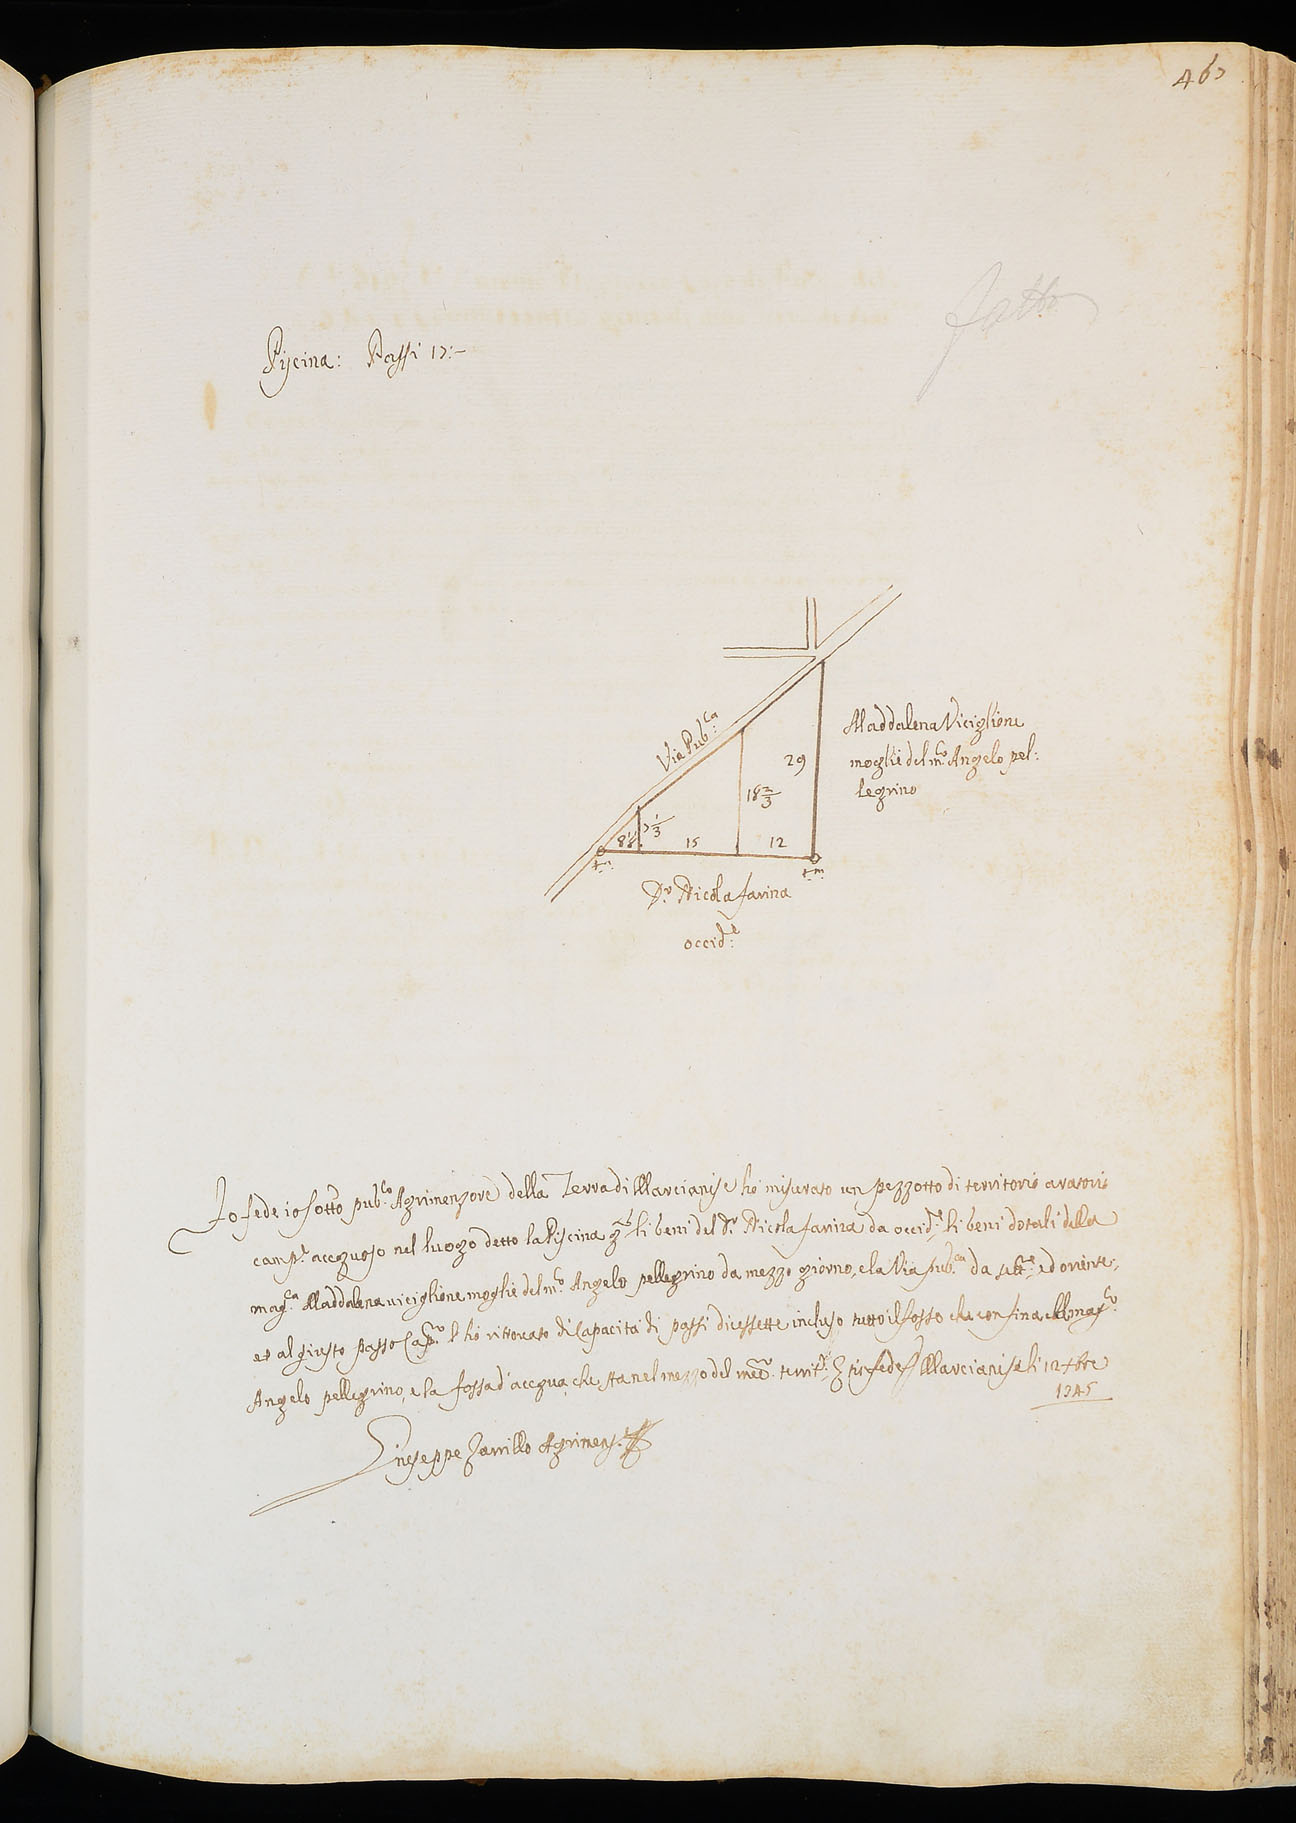 467
fatto
Piscina: Passi 17:-
Via Pub:ca
Maddalena Viciglione
moglie del m:co Angelo pel:
legrino
29
18 2/3
7 1/3
8 1/2
15
12
t:m:
Dr: Nicola farina
occid:e
Fo fede io sotto pub:co Agrimensore della Terra di Marcianise ho misurato un pezzotto di territorio aratorio
camp:e accquoso nel luogo detto la Piscina li beni del Dr: Nicola farina da occid:te li beni dotali della
mag:ca Maddalena viciglione moglie del m:co Angelo pellegrino da mezzo giorno, e la Via pub:ca da sett:ne ed oriente,
et al giusto passo Cap:no l'ho ritrovato di Capacità di passi dicessette incluso tutto il fosso che confina col mag:co
Angelo pellegrino, e la fossa d'accqua che sta nel mezzo del med:mo territ:o in fede Marcianise li 12 7bre
1745
Giuseppe Zarrillo Agrimens:e